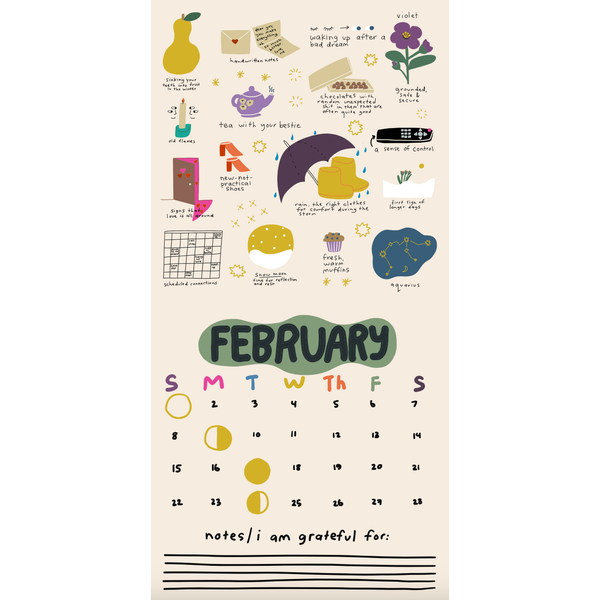 violet
waking up after a
bad dream
handwritten notes
sinking your
teeth into fruit
in the winter
chocolates with
random unexpected
shit in them that are
often quite good
grounded,
safe &
secure
tea with your bestie
old flames
a sense of control
new-not-
practical
shoes
rain, the right clothes
for comfort during the
storm
first sign of
longer days
signs that
love is all around
scheduled connections
snow moon
time for reflection
and rest
fresh,
warm
muffins
aquarius
FEBRUARY
S M T W Th F S
2 3 4 5 6 7
8 10 11 12 13 14
15 16 18 19 20 21
22 23 25 26 27 28
notes/i am grateful for: